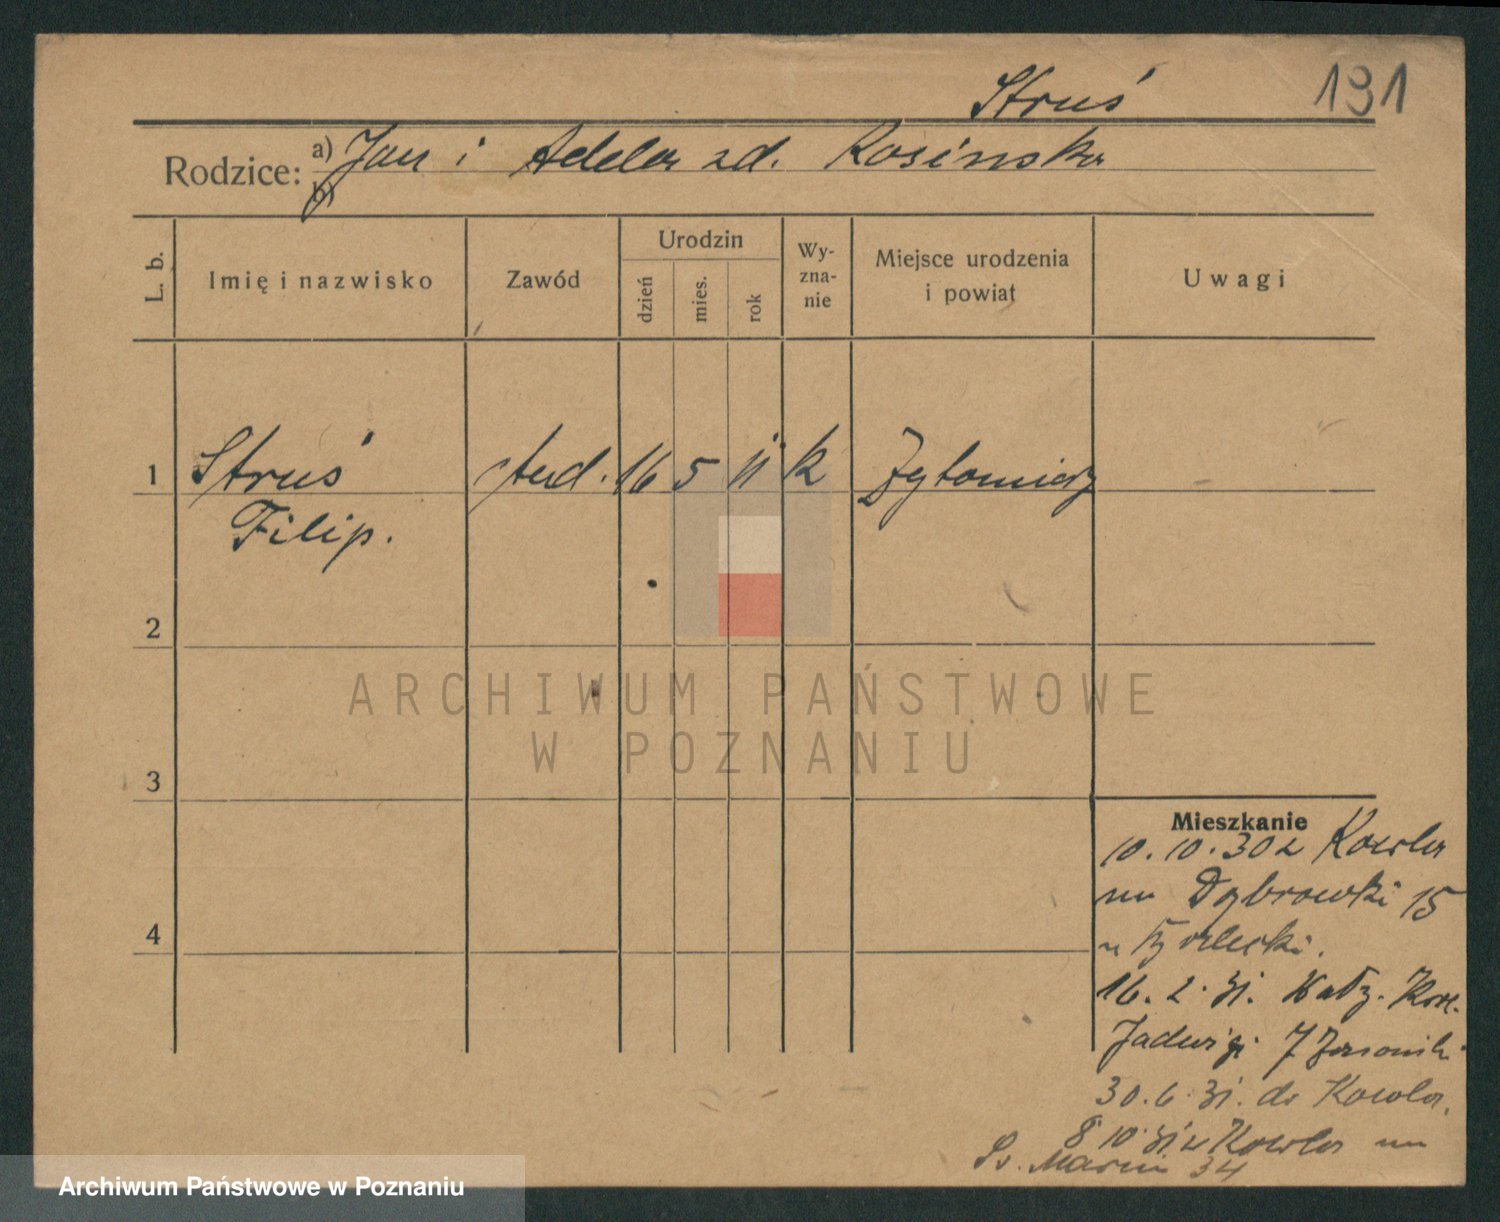 Struś 191
Rodzice: a) Jan i Adela zd. Rosińska
b)
L. b. Imię i nazwisko Zawód Urodzin dzień mies. rok Wy-zna-nie Miejsce urodzenia i powiat Uwagi
1 Struś stud. 16 5 11 k Żytomierz
Filip.
2
ARCHIWUM PAŃSTWOWE
W POZNANIU
3
Mieszkanie
10.10.30 z Kowla
na Dąbrowski 15
4
16.2.31. Wały. Król.
Jadwigi 7
30.6.31. do Kowla.
8 10 31 z Kowla na
Św. Marcin 34
Archiwum Państwowe w Poznaniu